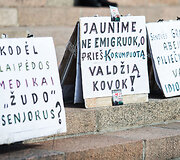 KODĖL
LAIPĖDOS
MEDIKAI
"ŽUDO"
SENJORUS?
JAUNIME,
NE EMIGRUOK, O
PRIEŠ KORUMPUOTĄ
VALDŽIĄ
KOVOK!